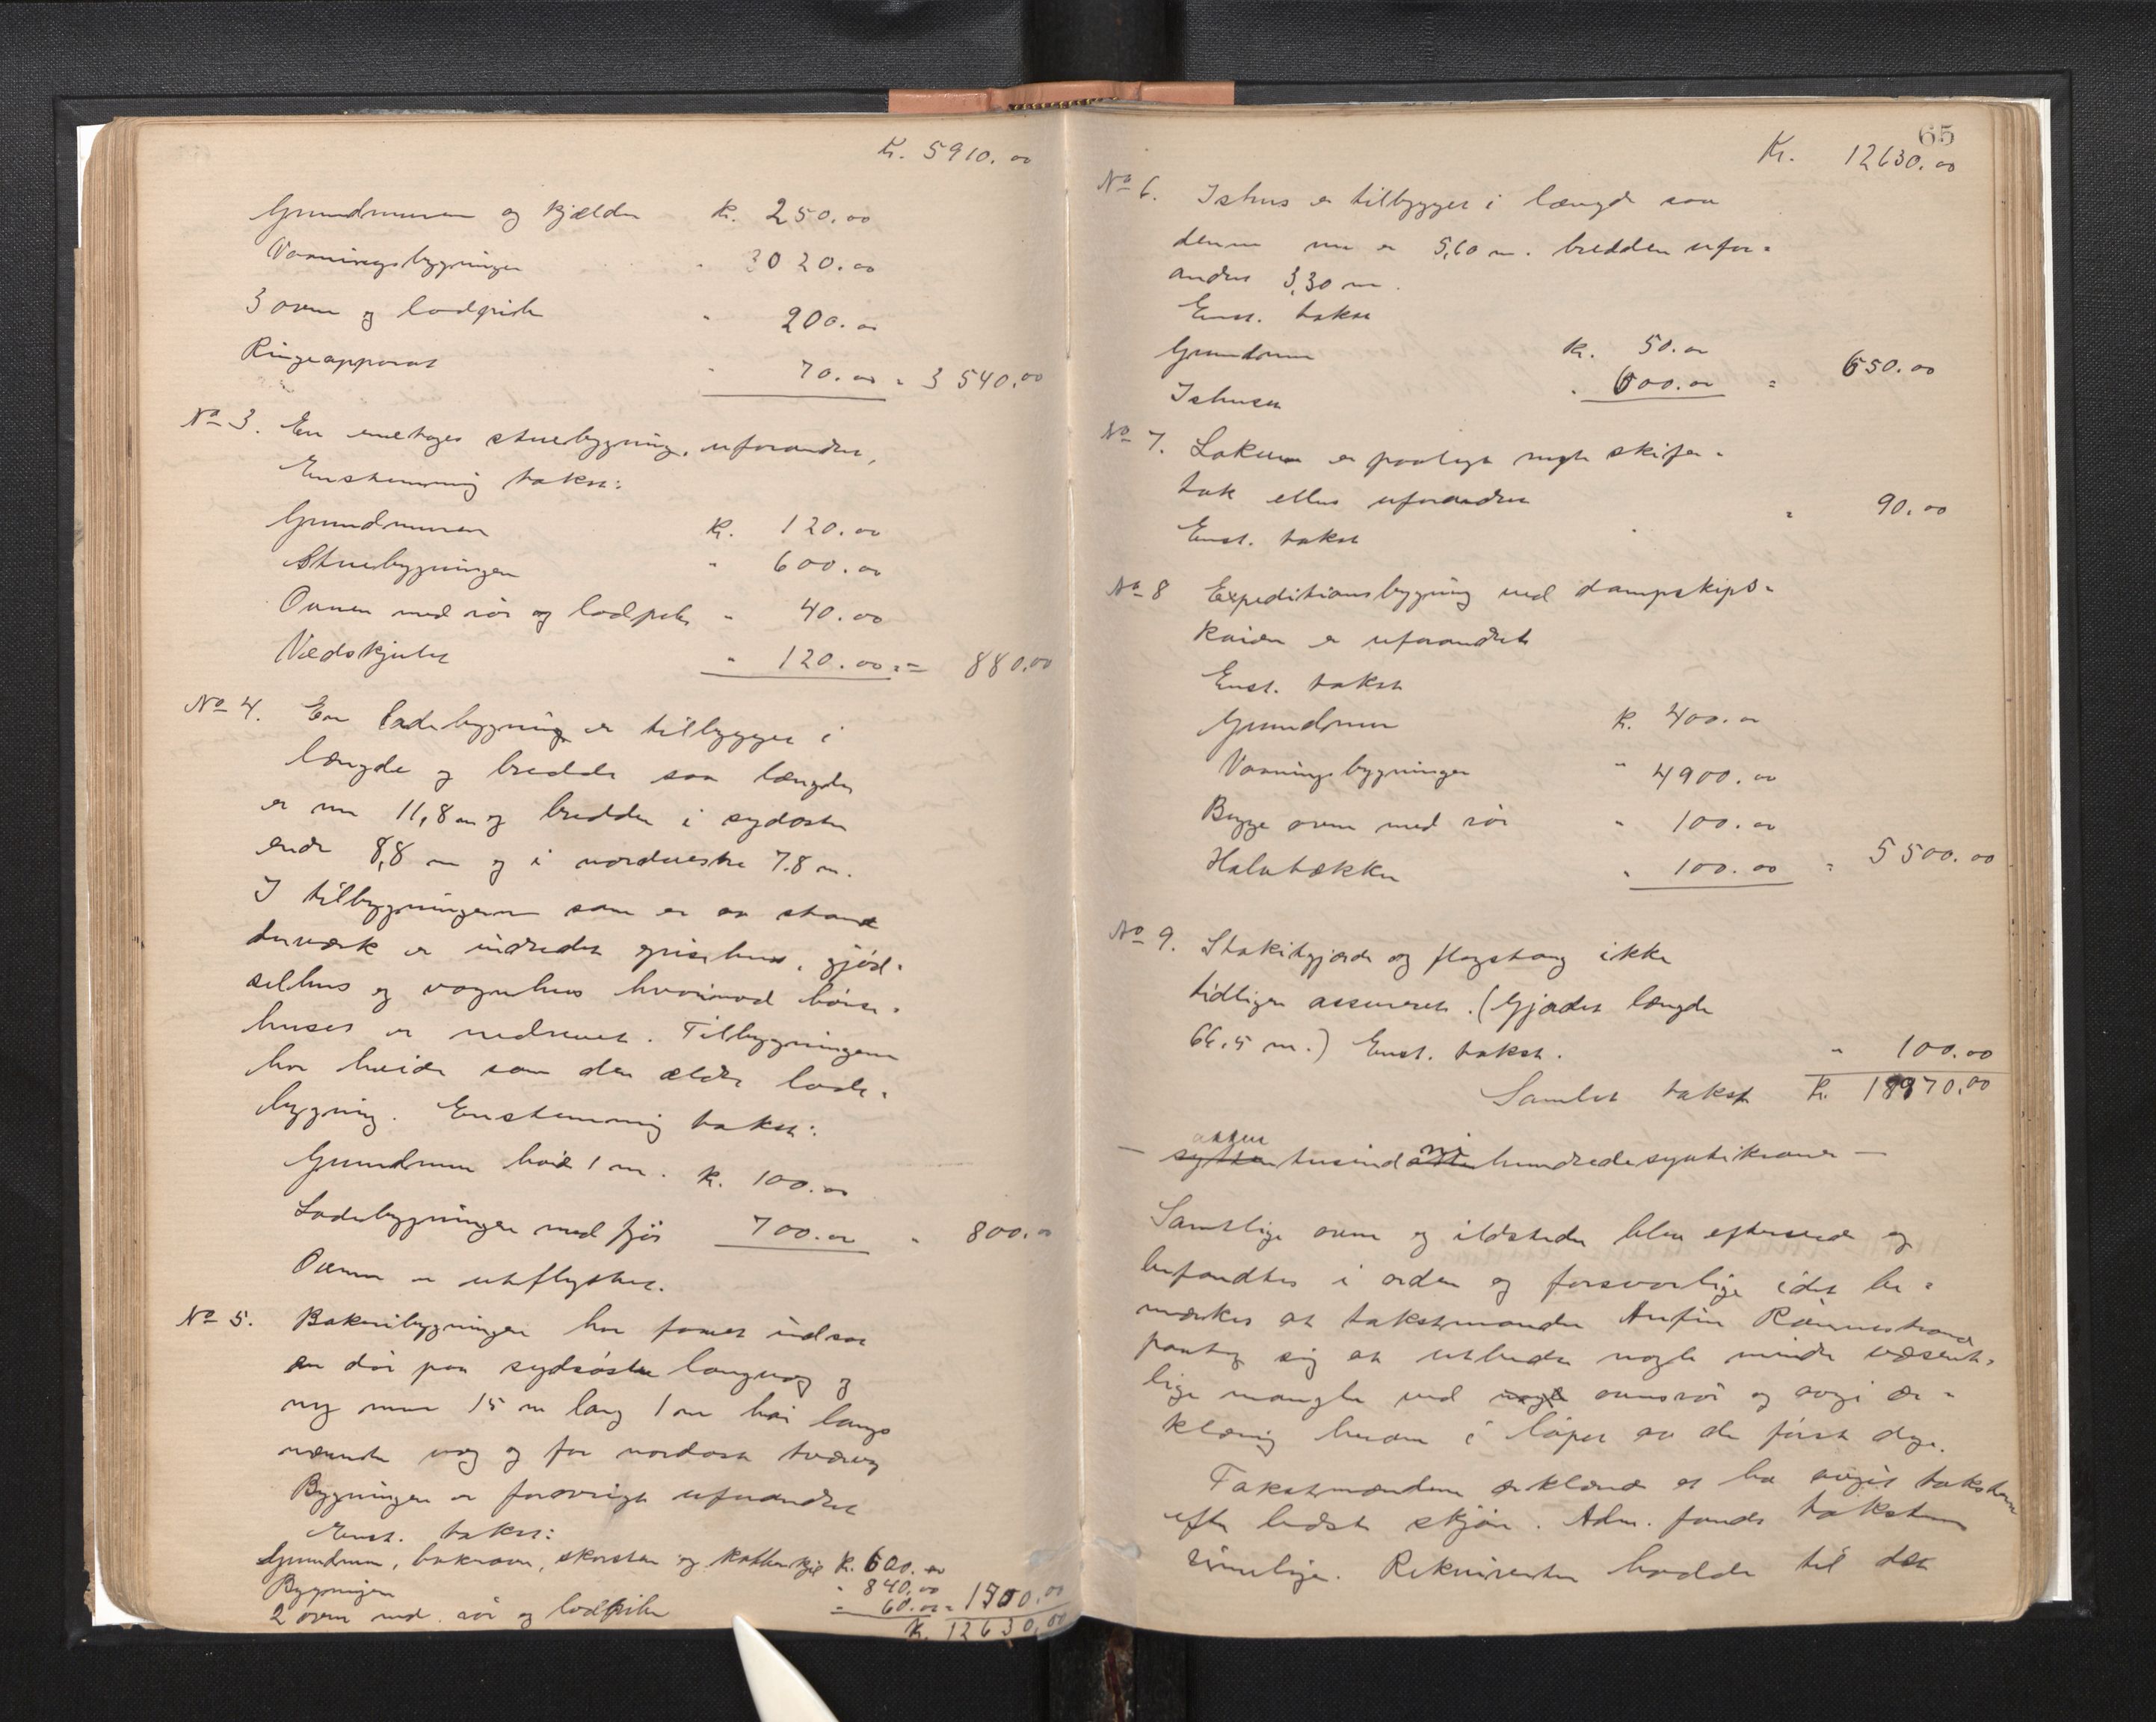 Kr. 5910.00
Grundmuren og kjælder Kr. 250.00
Vaaningsbygningen " 3020.00
3 ovne og lodpiber " 200.00
Ringeapparat " 70.00 = 3540.00
No 3. En enetages stuebygning, uforandret,
Enstemmig takst:
Grundmuren Kr. 120.00
Stuebygningen " 600.00
Ovnen med rør og lodpibe " 40.00
Vedskjulet " 120.00 = 880.00
No 4. En ladebygning er tilbygget i
længde og bredde saa længden
er nu 11,8 m og bredden i sydøstre
ende 8,8 m og i nordvestre 7.8 m.
I tilbygningerne som er av stand
derverk er indredet grisehus, gjød-
selhus og vognhus hvorimod heise-
huset er nedrevet. Tilbygningene
har høide som den ældre lade-
bygning. Enstemmig takst:
Grundmur høide 1 m. Kr. 100.00
Ladebygningen med fjøs 700.00 " 800.00
Ovnen er utflyttet.
No 5. Bakeribygningen har faaet indsat
en dør paa sydøstre langvæg og
ny mur 15 m lang 1 m høi langs
nævnte væg og for nordøst tvervæg
Bygningen er forøvrigt uforandret
Enst. takst:
Grundmur, bakerovn, skorsten og kobberkjel Kr. 600.00
Bygningen " 840.00
2 ovne med rør og lodpiber " 60.00 = 1500.00
Kr. 12630.00
65
Kr. 12630.00
No 6. Ishus er tilbygget i længde saa
denne nu er 5,60 m. bredden ufor-
andret 3,30 m.
Enst. takst
Grundmur Kr. 50.00
Ishuset " 600.00 = 650.00
No 7. Lokum er paalagt nyt skifer-
tak ellers uforandret
Enst. takst " 90.00
No 8 Expeditionsbygning ved dampskibs-
kaien er uforandret
Enst. takst
Grundmur Kr. 400.00
Vaaningsbygningen " 4900.00
Begge ovne med rør " 100.00
Halvtækket " 100.00 = 5500.00
No 9. Stakitgjærde og flagstang ikke
tidligere assureret. (Gjærdets længde
66.5 m.) Enst. takst. " 100.00
Samlet takst Kr. 18970.00
atten
— sytten tusind otte ni hundrede sytti kroner —
Samtlige ovne og ildsteder blev efterseet og
befandtes i orden og forsvarlige idet be-
merkes at takstmanden Anfin Rønnestrand
paatog sig at utbedre nogle mindre væsent-
lige mangler ved nogle ovnsrør og avgi er-
klæring herom i løpet av de første dage.
Takstmændene erklærede at ha avgit taksterne
efter bedste skjøn. Adm. fandt taksterne
rimelige. Rekvirenten hadde til det